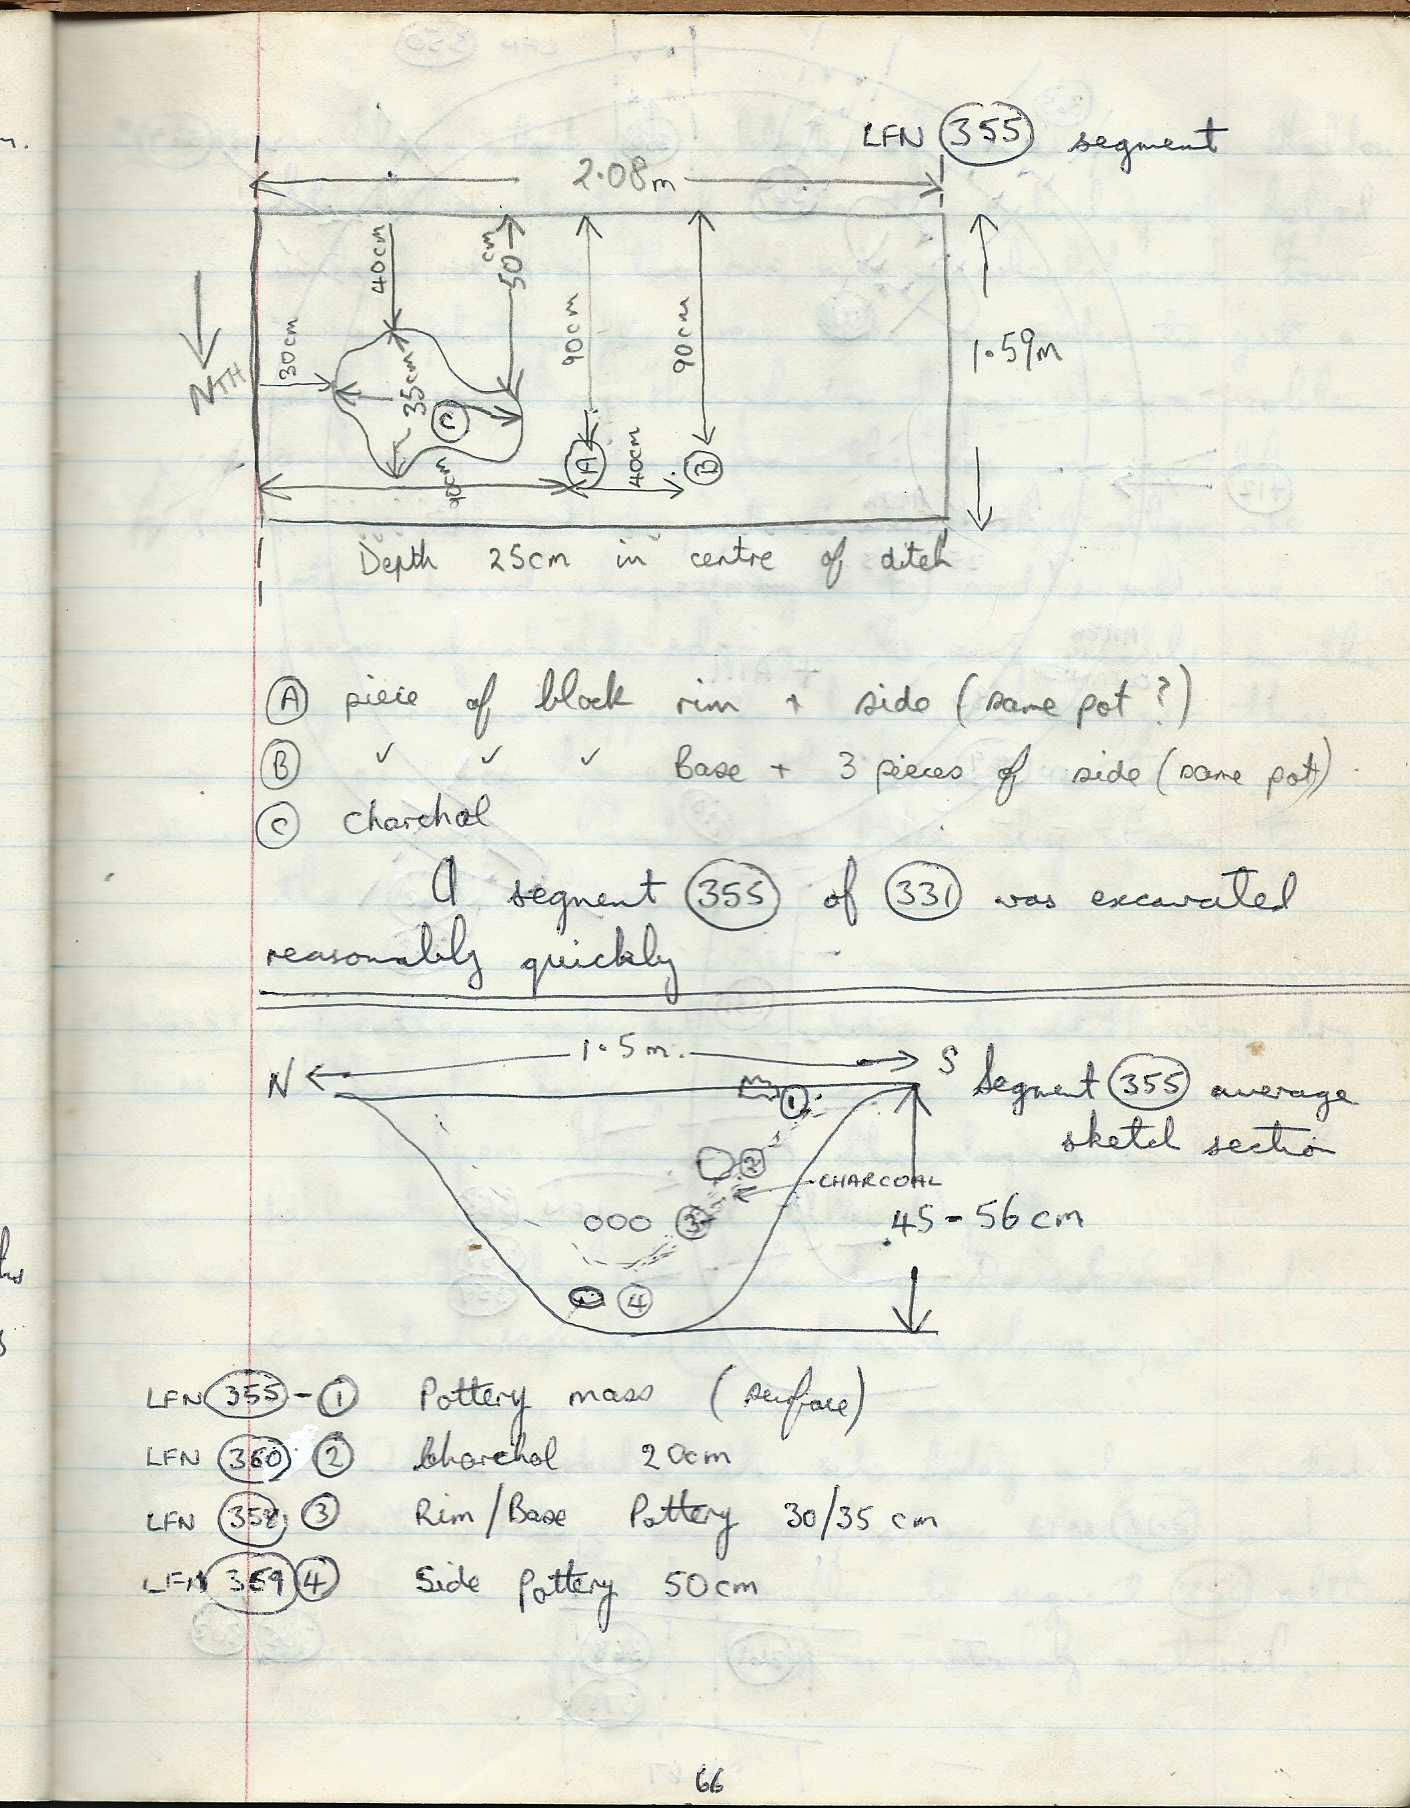 LFN 355 segment
2.08m
40cm
50cm
30cm
35cm
90cm
90cm
1.59m
NTH
C
A
40cm
B
90cm
Depth 25cm in centre of ditch
A piece of black rim + side (same pot?)
B ✓ ✓ ✓ Base + 3 pieces of side (same pot)
C Charchol
A segment 355 of 331 was excavated
reasonably quickly
N 1.5m. S Segment 355 average
sketch section
1
2
CHARCOAL
3
45-56cm
4
LFN 355 - 1 Pottery mass (surface)
LFN 360 2 Charchol 20cm
LFN 358 3 Rim/Base Pottery 30/35 cm
LFN 359 4 Side Pottery 50cm
66